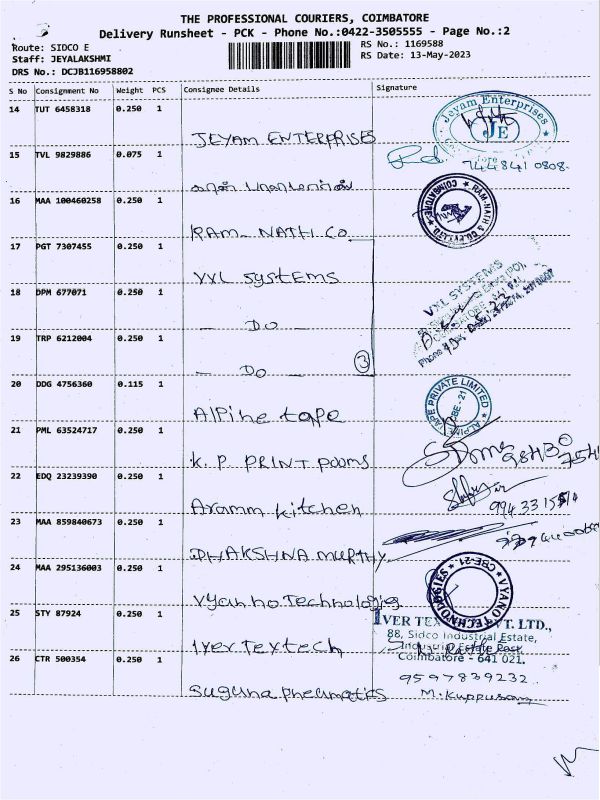 THE PROFESSIONAL COURIERS, COIMBATORE
Delivery Runsheet - PCK - Phone No.:0422-3505555 - Page No.:2
Route: SIDCO E
Staff: JEYALAKSHMI
DRS No.: DCJB116958802
RS No.: 1169588
RS Date: 13-May-2023
S No Consignment No Weight PCS Consignee Details Signature
14 TUT 6458318 0.250 1
JEYAM ENTERPRISES
Jeyam Enterprises
JE
15 TVL 9829886 0.075 1
744841 0808
16 MAA 100460258 0.250 1
RAM NATH CO
RAM-NATH & CO.PVT.LTD.
COIMBATORE
17 PGT 7307455 0.250 1
VXL Systems
VXL SYSTEMS
18 DPM 677071 0.250 1
— DO —
19 TRP 6212004 0.250 1
— DO —
3
20 DDG 4756360 0.115 1
Alpine tape
TAPE PRIVATE LIMITED
ALPINE
CBE - 21
21 PML 63524717 0.250 1
K. P PRINT pooms
22 EDQ 23239390 0.250 1
Aramm kitchen
23 MAA 859840673 0.250 1
DHAKSHNA MURTHY
24 MAA 295136003 0.250 1
Vyanno Technologis
VYANO TECHNOLOGIES
CBE-21
25 STY 87924 0.250 1
1ver Textech
IVER TEX PVT. LTD.,
88, Sidco Industrial Estate,
Industrial Estate Post
Coimbatore - 641 021.
26 CTR 500354 0.250 1
Suguna pneumatics
9597839232
M. Kuppusamy